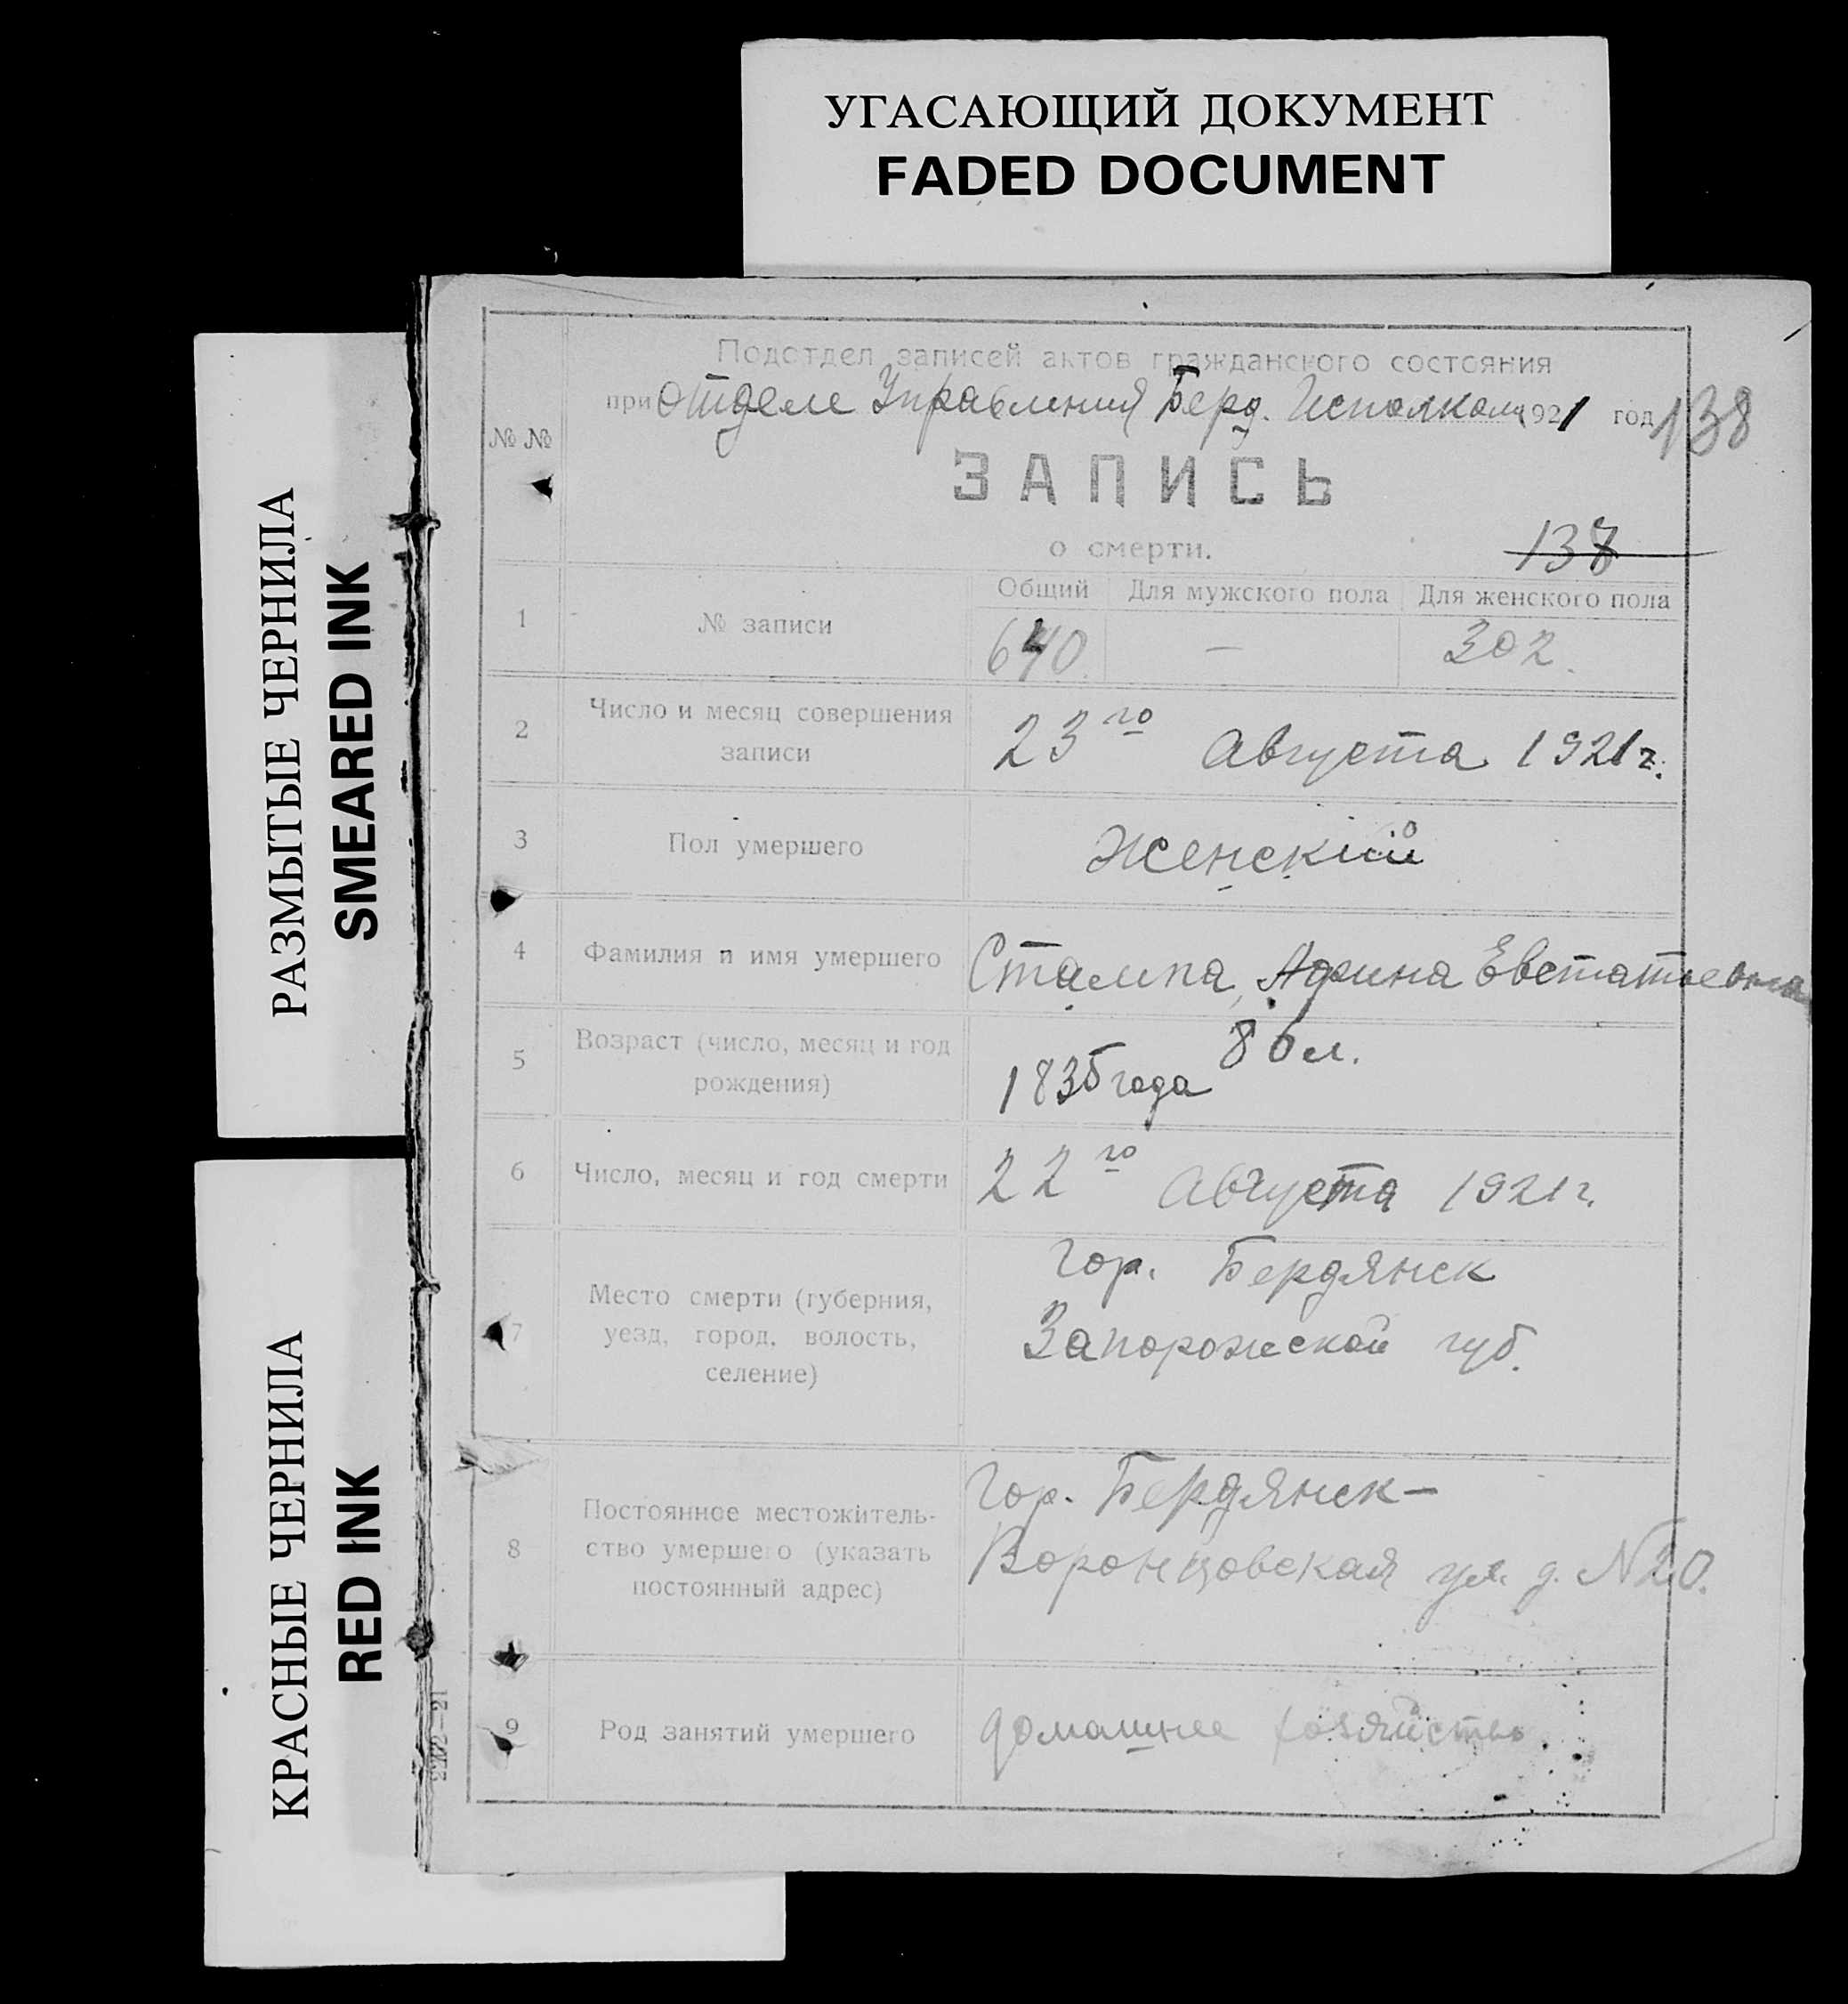 УГАСАЮЩИЙ ДОКУМЕНТ
FADED DOCUMENT
РАЗМЫТЫЕ ЧЕРНИЛА
SMEARED INK
КРАСНЫЕ ЧЕРНИЛА
RED INK
Подотдел записей актов гражданского состояния
при отделе Управления Берд. Исполкома 1921 год
138
№ №
ЗАПИСЬ
о смерти.
138
Общий Для мужского пола Для женского пола
1 № записи 640. — 302.
2 Число и месяц совершения
записи
23го Августа 1921 г.
3 Пол умершего Женский
4 Фамилия и имя умершего Стампа, Евстатьевна
5 Возраст (число, месяц и год
рождения)
86 л.
1835 года
6 Число, месяц и год смерти 22го Августа 1921 г.
7 Место смерти (губерния,
уезд, город, волость,
селение)
Гор. Бердянск
Запорожской губ.
8 Постоянное местожитель-
ство умершего (указать
постоянный адрес)
Гор. Бердянск —
Воронцовская ул. д. №20.
9 Род занятий умершего домашнее хозяйство.